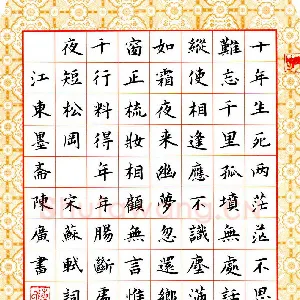 十年生死兩茫茫不思
難忘千里孤墳無處話
縱使相逢應不識塵
如霜夜來幽夢忽還鄉
窗正梳妝相顧無言惟
千行料得年年腸斷處
夜短松岡 宋蘇軾詞
江東墨斋陳廣書